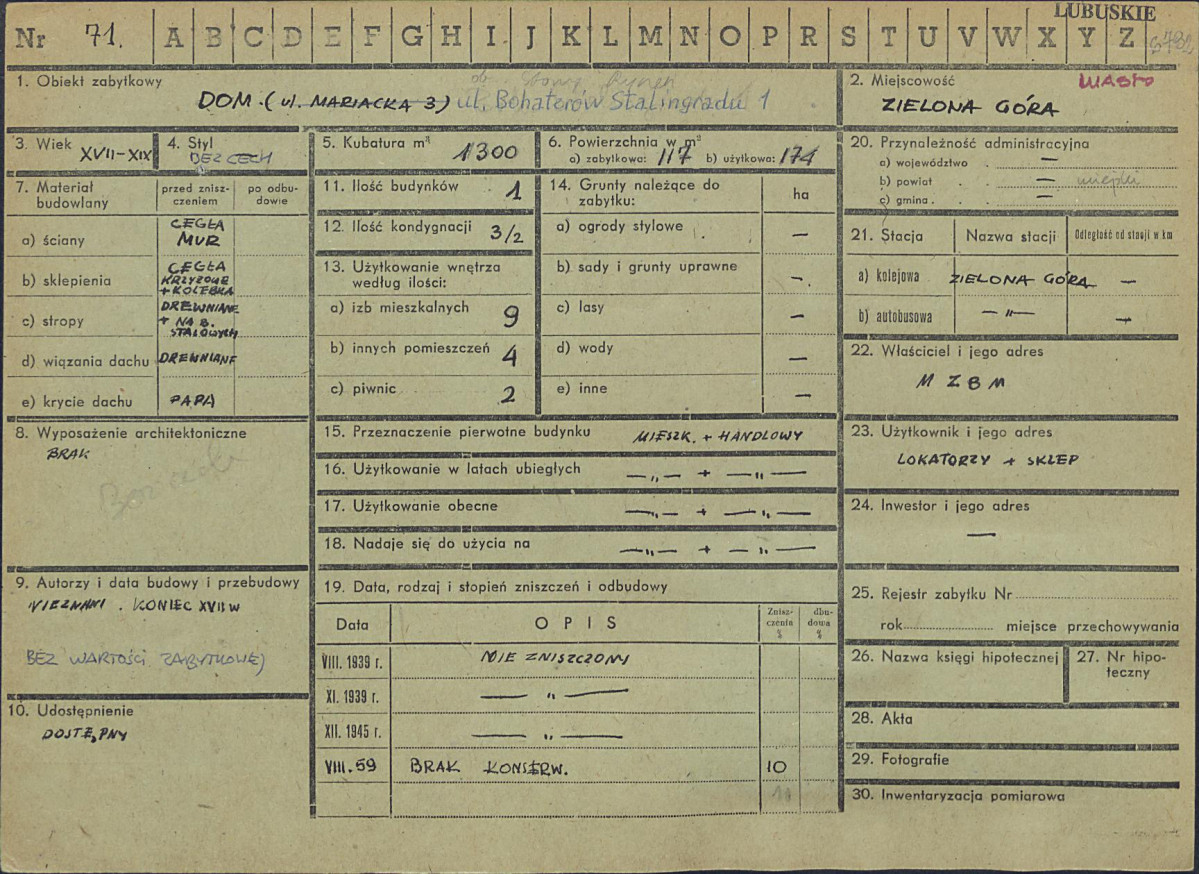 LUBUSKIE
Nr 71. A B C D E F G H I J K L M N O P R S T U V W X Y Z
1. Obiekt zabytkowy
ob. Stary Rynek
DOM. (ul. MARIACKA 3) ul. Bohaterów Stalingradu 1
2. Miejscowość MIASTO
ZIELONA GÓRA
3. Wiek XVII-XIX
4. Styl
BEZ CECH
5. Kubatura m³ 1300
6. Powierzchnia w m²
a) zabytkowa: 117 b) użytkowa: 174
7. Materiał budowlany
przed znisz-
czeniem
po odbu-
dowie
a) ściany CEGŁA
MUR
b) sklepienia CEGŁA
KRZYŻOWE
+ KOLEBKA
c) stropy DREWNIANE
+ NA B.
STALOWYCH
d) wiązania dachu DREWNIANE
e) krycie dachu PAPA
8. Wyposażenie architektoniczne
BRAK
Bez cech
9. Autorzy i data budowy i przebudowy
NIEZNANI. KONIEC XVII W
BEZ WARTOŚCI ZABYTKOWEJ
10. Udostępnienie
DOSTĘPNY
11. Ilość budynków 1
12. Ilość kondygnacji 3/2
13. Użytkowanie wnętrza
według ilości:
a) izb mieszkalnych 9
b) innych pomieszczeń 4
c) piwnic 2
14. Grunty należące do
zabytku: ha
a) ogrody stylowe —
b) sady i grunty uprawne —
c) lasy —
d) wody —
e) inne —
15. Przeznaczenie pierwotne budynku MIESZK. + HANDLOWY
16. Użytkowanie w latach ubiegłych —„— + —„—
17. Użytkowanie obecne —„— + —„—
18. Nadaje się do użycia na —„— + —„—
19. Data, rodzaj i stopień zniszczeń i odbudowy
Data OPIS
Znisz-
czenia
%
dbu-
dowa
%
VIII. 1939 r. NIE ZNISZCZONY
XI. 1939 r. — „ —
XII. 1945 r. — „ —
VIII. 59 BRAK KONSERW. 10
10
20. Przynależność administracyjna
a) województwo . —
b) powiat . . — miejski
c) gmina . . —
21. Stacja Nazwa stacji Odległość od stacji w km
a) kolejowa ZIELONA GÓRA —
b) autobusowa —„— —
22. Właściciel i jego adres
M Z B M
23. Użytkownik i jego adres
LOKATORZY + SKLEP
24. Inwestor i jego adres
—
25. Rejestr zabytku Nr
rok miejsce przechowywania
26. Nazwa księgi hipotecznej
27. Nr hipo-
teczny
28. Akta
29. Fotografie
30. Inwentaryzacja pomiarowa